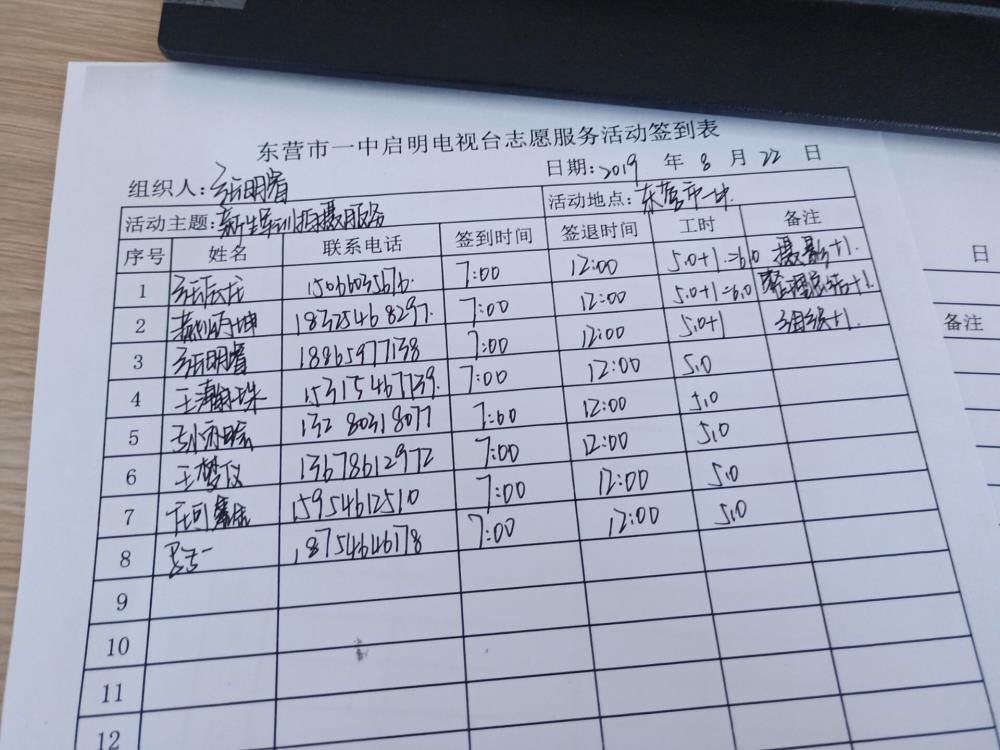 东营市一中启明电视台志愿服务活动签到表
组织人: 张明睿 日期: 2019 年 8 月 22 日
活动主题: 新生军训拍摄服务 活动地点: 东营市一中
序号 姓名 联系电话 签到时间 签退时间 工时 备注
1 15066035676. 7:00 12:00 5.0+1=6.0 摄影+1.
2 18325468297. 7:00 12:00 5.0+1=6.0 整理总结+1.
3 张明睿 18865977138 7:00 12:00 5.0+1 组织+1.
4 王瀚珠 15315467739. 7:00 12:00 5.0
5 132 80318077 7:00 12:00 5.0
6 王梦仪 13678612972 7:00 12:00 5.0
7 15954612510 7:00 12:00 5.0
8 18754646178 7:00 12:00 5.0
9
10
11
12
日
备注